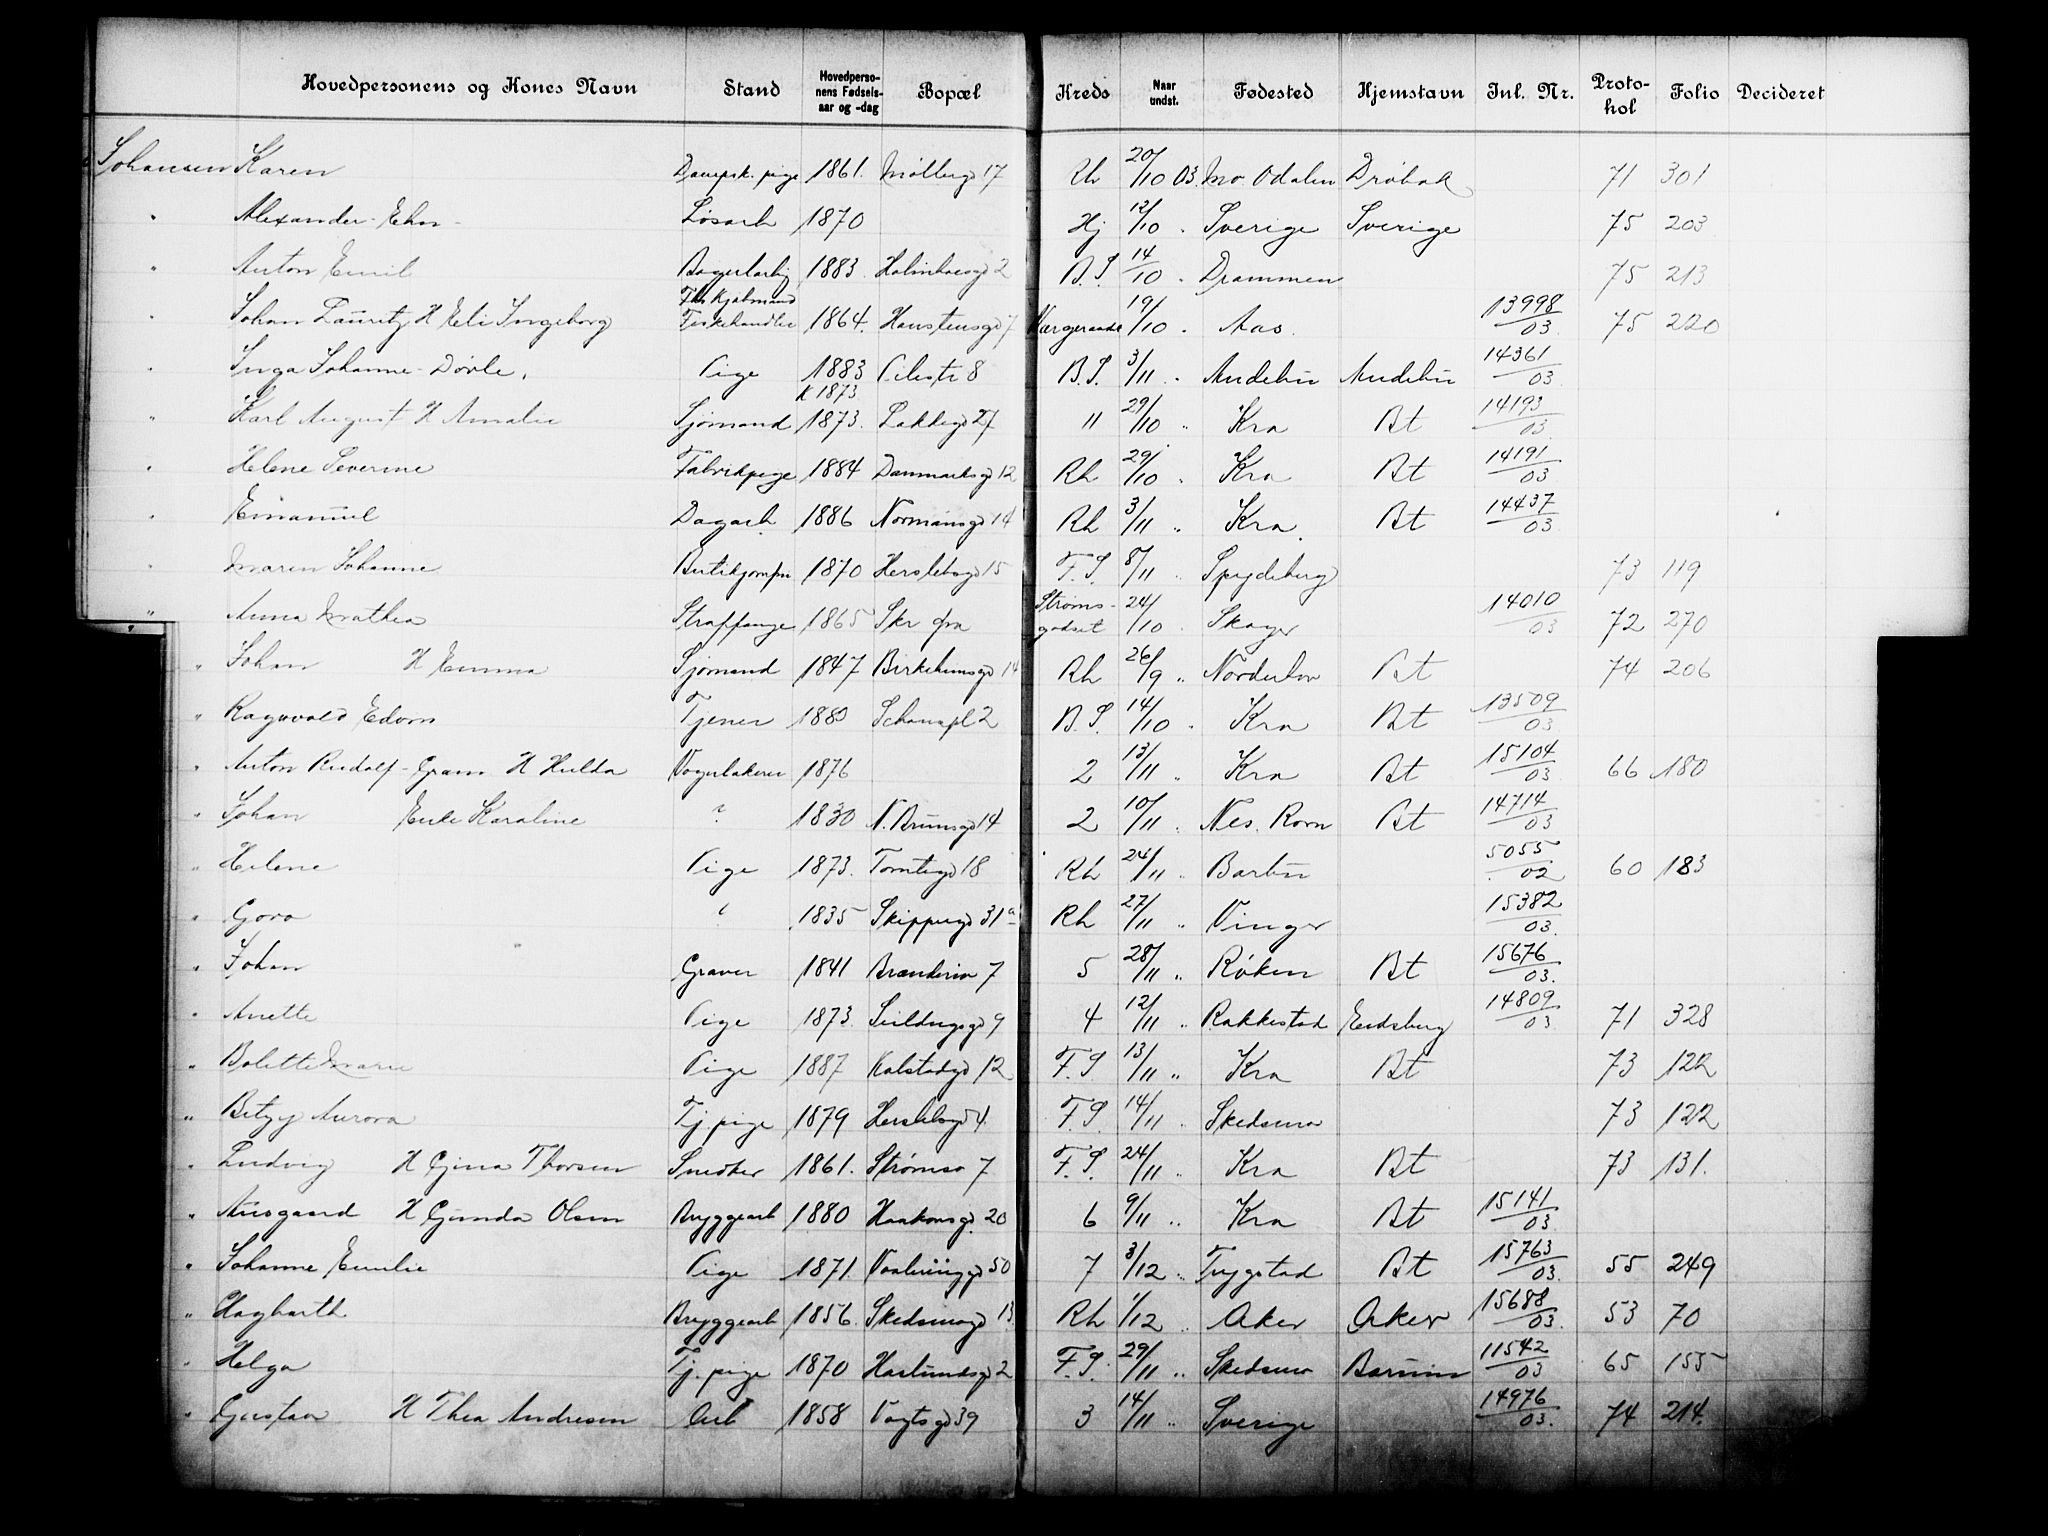 Hovedpersonens og Kones Navn Stand Hovedpersonens Fødselsaar og -dag Bopæl Kreds Naar undst. Fødested Hjemstavn Inl. Nr. Protokol Folio Decideret
Johansen Karen Dampsk. pige 1861. Møllergd 17 Rh 20/10 03. No. Odalen Drøbak 71 301
" Alexander - Ehn - Løsarb 1870 Hj 12/10 " Sverige Sverige 75 203
" Anton Emil 1883 2 B.S. 14/10 " Drammen 75 213
" Johan Lauritz H Eli Ingeborg Fhv Kjøbmand Fiskehandler 1864. Haustensgd 7 19/10 " Aas. 13998/03 75 220
" Inga Johanne - Dørle. Pige 1883 Pilestr 8 B.S. 3/11 " Andebu Andebu 14361/03
" Karl August H Amalie Sjømand K 1873 1873. Lakkegd 27 " 29/10 " Kra Bt 14193/03
" Helene Severine Fabrikpige 1884 Danmarksgd 12 Rh 29/10 " Kra Bt 14191/03
" Emanuel Dagarb. 1886 Normansgd 14 Rh 3/11 " Kra. Bt 14437/03
" Maren Johanne Butikjomfru 1870 Herslebsgd 15 F.S. 8/11 " Spydeberg 73 119
" Anna Mathea Straffange 1865 Strømsgodset 24/10 " Skoger 14010/03 72 270
" Johan H Emma Sjømand 1847 Birkelunsgd 14 Rh 26/9 " Norderhov Bt 74 206
" Ragnvald Edvin Tjener 1880 Schouspl 2 B.S. 14/10 " Kra Bt 13509/03
" Anton Rudolf - Gram H Hulda 1876 2 13/11 " Kra Bt 15104/03 66 180
" Johan Enke Karoline ? 1830 N. Brunsgd 14 2 10/11 " Nes. Rom Bt 14714/03
" Helene Pige 1873. Tomtegd 18 Rh 24/11 " Barbu 5055/02 60 183
" Goro 1835 Skippergd 31 a Rh 27/11 " Vinger 15382/03.
" Johan Graver 1841 7 5 28/11 " Røken Bt 15676/03.
" Anette Pige 1873. 9 4 12/11 " Rakkestad Eidsberg 14809/03 71 328
" Bolette Marie Pige 1887 Kalstadgd 12 F.S 13/11 " Kra Bt 73 122
" Betzy Aurora Tj pige 1879 Herslebsgd 4 F.S. 14/11 " Skedsmo 73 122
" Ludvig H Gjina Thorsen Snedker 1861. Strømsv 7 F.S. 24/11 " Kra Bt 73 131.
" Ausgaard H Gunda Olsen Bryggearb 1880 Haakonsgd. 20 6 9/11 " Kra Bt 15141/03.
" Johanne Emilie Pige 1871. Vaaleringgd 50 7 3/12 " Trygstad Bt 15763/03. 55 249
" Hagbarth Bryggearb 1856. Skedsmogd 13. Rh 1/12 " Aker Aker 15688/03. 53 70
" Helga Tj. pige 1870 Haslundsgd 2 F.S. 29/11 " Skedsmo Bærum 11542/03 65 155
" Gustav H Thea Andresen Arb 1858 Vogtsgd 39 3 14/11 " Sverige 14976/03. 74 214.